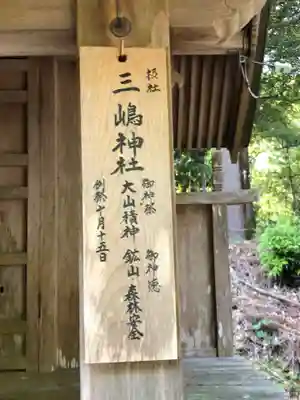 摂社
三嶋神社
御神祭
大山積神
例祭十月十五日
御神徳
鉱山 森林安全